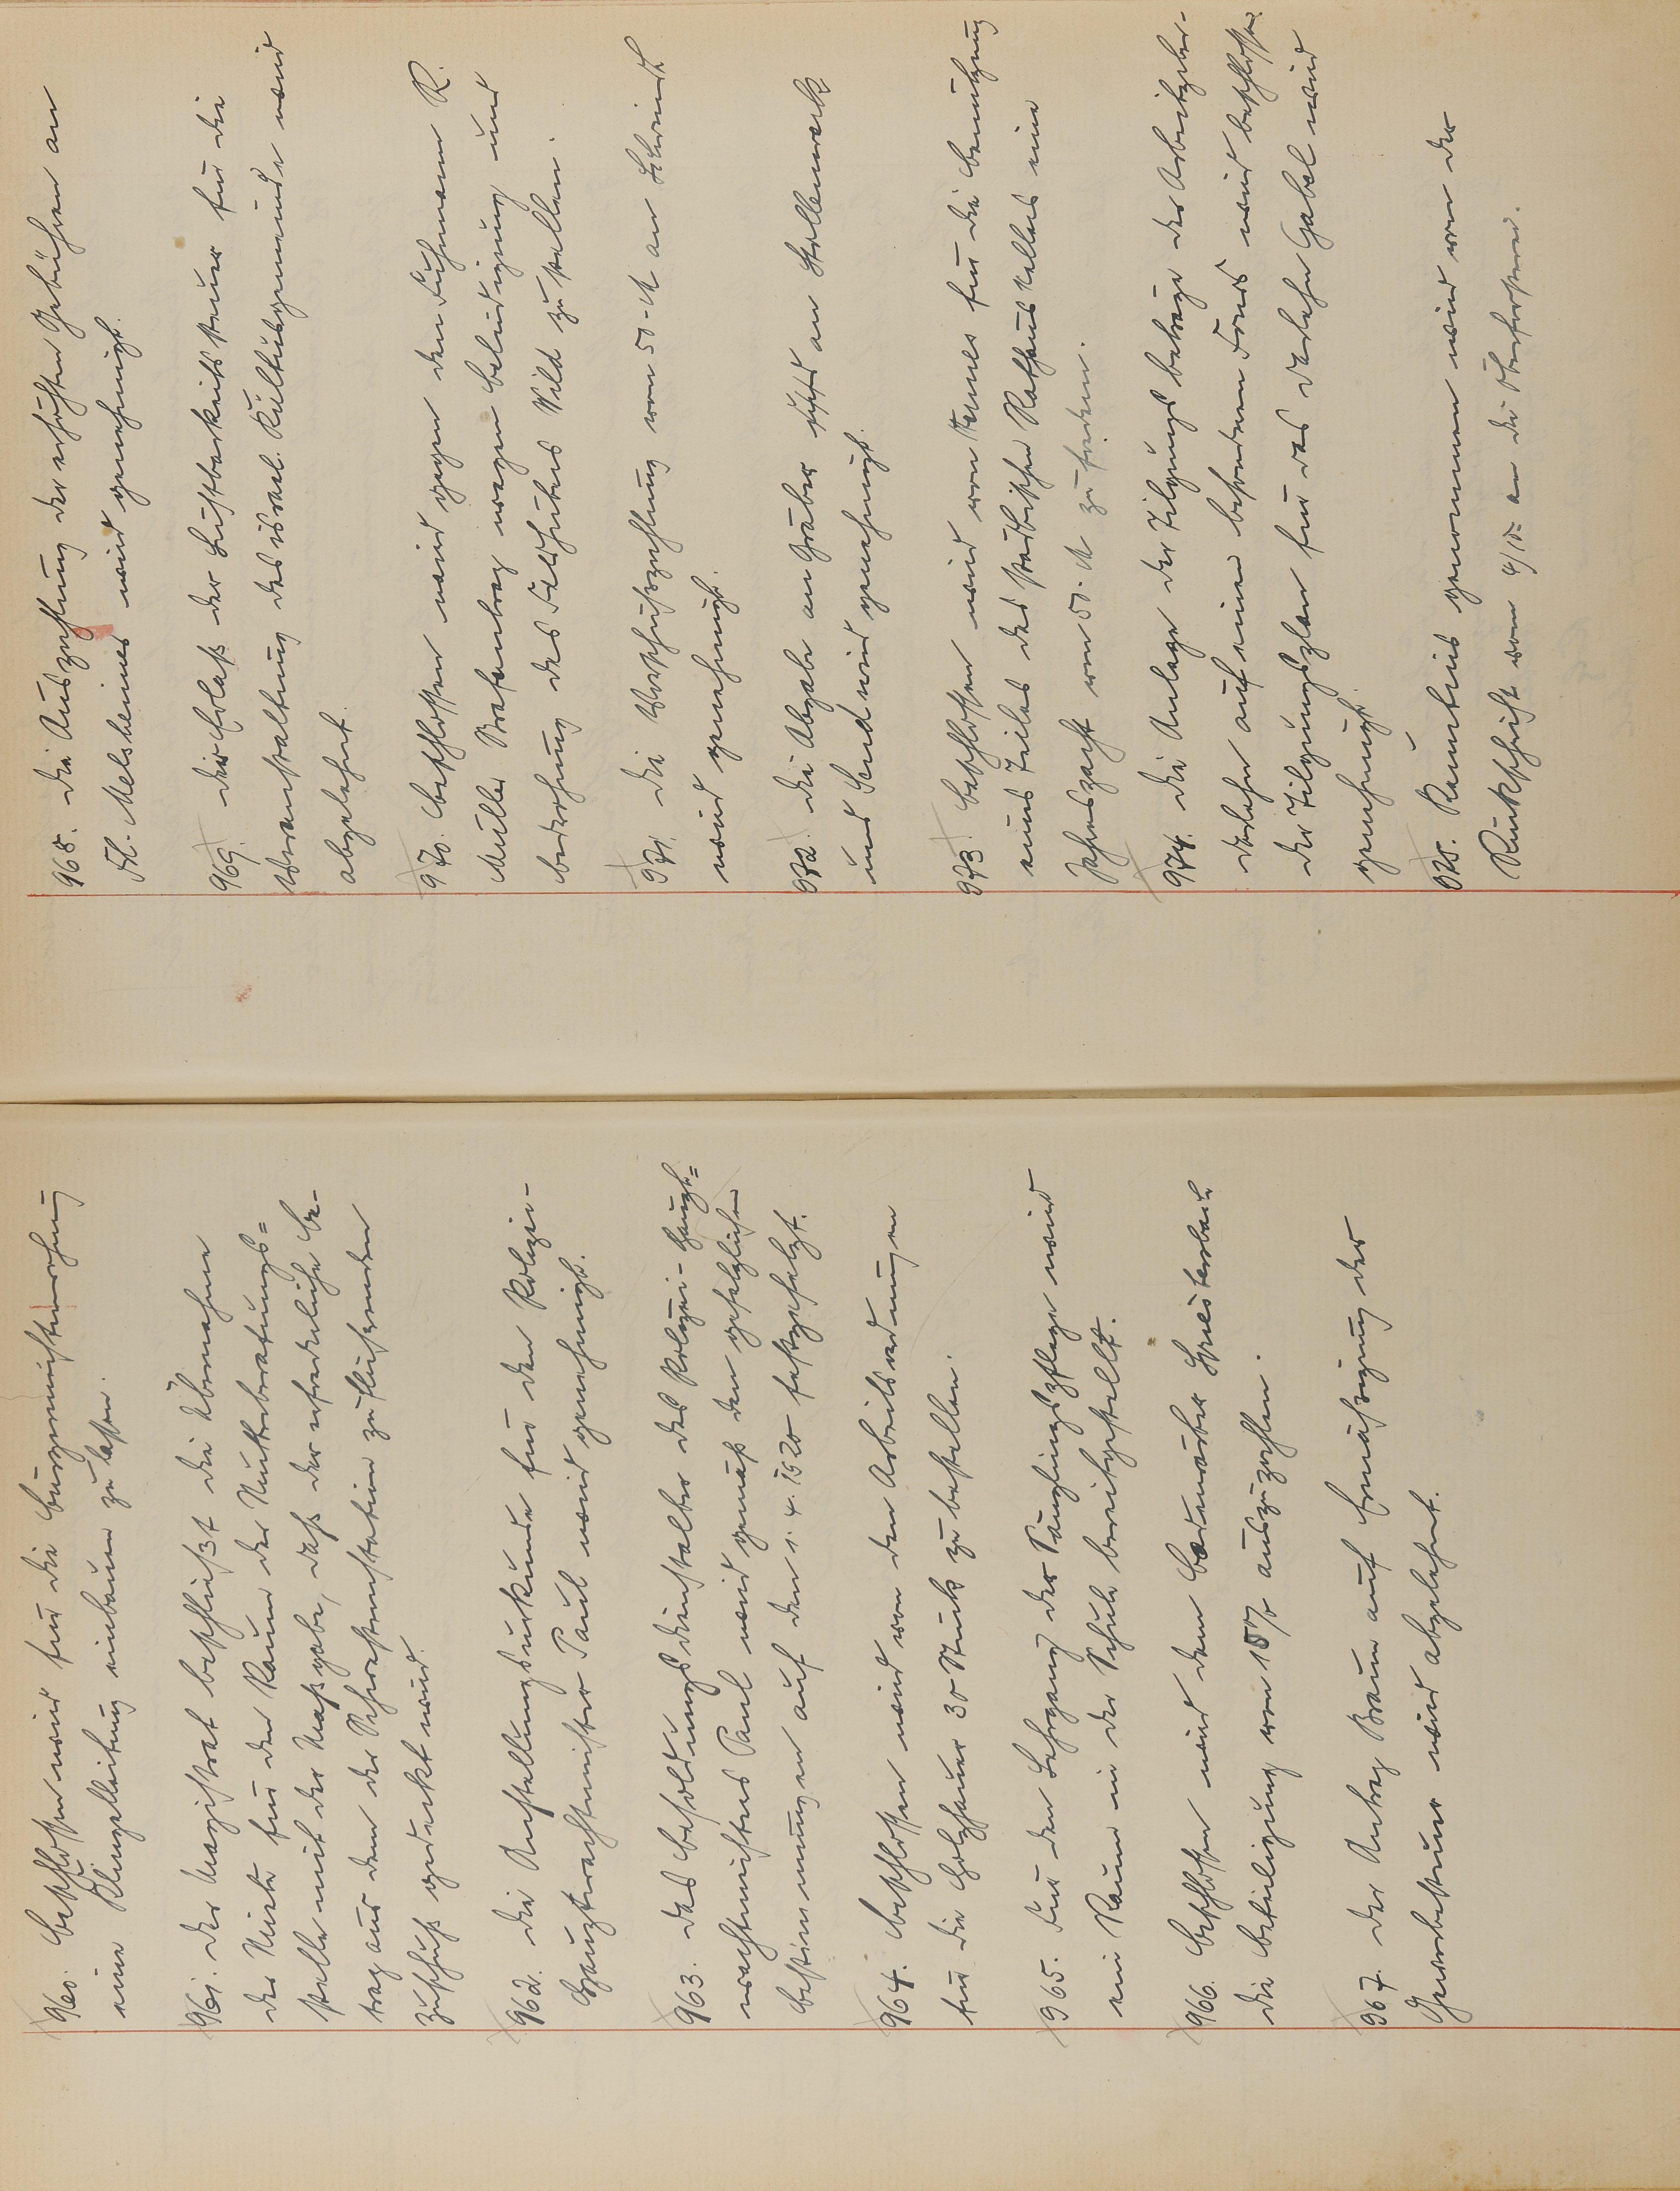 960. Beschlossen wird für die Bürgermeisterwohnung
eine Klingelleitung einbauen zu lassen.
961. Der Magistrat beschließt die Übernahme
der Miete für den Raum der Mutterberatungs=
stelle mit der Maßgabe, daß der erforderliche Be-
trag aus dem der Schwesternstation zufließenden
Zuschuß gedeckt wird.
962. Die Anstellungsurkunde für den Polizei-
Hauptwachtmeister Paul wird genehmigt.
963. Das Besoldungsdienstalter des Polizei-Haupt=
wachtmeisters Paul wird gemäß den gesetzlichen
Bestimmungen auf den 1. 4. 1920 festgesetzt.
964. Beschlossen wird von den Arbeitsordnungen
für die Holzhauer 30 Stück zu bestellen.
965. Für den Lehrgang der Säuglingspflege wird
ein Raum in der Schule bereitgestellt.
966. Beschlossen wird dem Badewärter Griesterbach
die Beteiligung von 10% auszuzahlen.
967. Der Antrag Braun auf Ermäßigung der
Gewerbesteuer wird abgelehnt.
968. Die Auszahlung der erhöhten Gebühren an
Fl. Melsheimer wird genehmigt.
969. Der Erlaß der Lustbarkeitssteuer für die
Veranstaltung der israel. Kultusgemeinde wird
abgelehnt.
970. Beschlossen wird gegen den Fuhrmann R.
Müller Strafantrag wegen Beleidigung und
Bedrohung des Feldhüters Wild zu stellen.
971. Die Vorschußzahlung von 50.-M an Schmidt
wird genehmigt.
972. Die Abgabe an Gräber an Stellenwerk
und Send wird genehmigt.
973. Beschlossen wird von Kemes für die Benutzung
eines Teiles des städtischen Rathauskellers eine
Jahrespacht von 50.-M zu fordern.
974. Die Anlage der Tilgungsbeträge der Arbeitgeber-
darlehn auf einen besonderen Fonds wird beschlossen.
Der Tilgungsplan für das Darlehn Gabel wird
genehmigt.
975. Kenntnis genommen wird von der
Rückschrift vom 4/10 an die Oberförsterei.